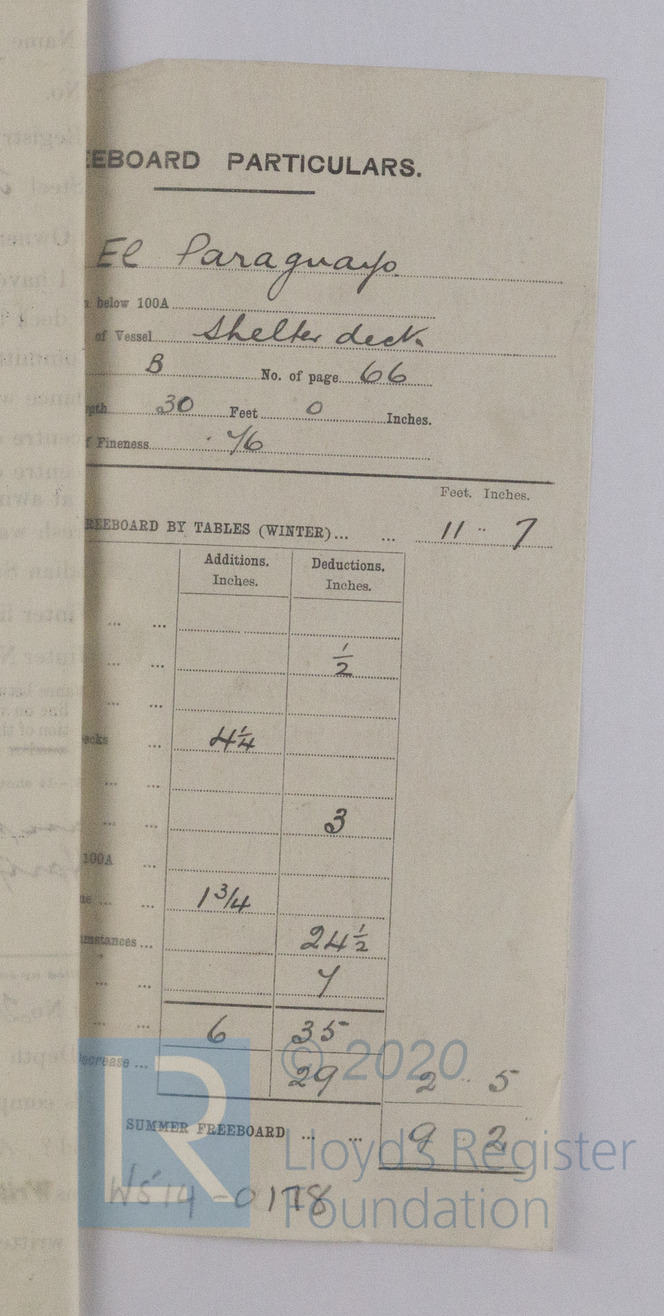 EEBOARD PARTICULARS.
El Paraguayo
below 100A
of Vessel Shelter deck.
B No. of page 66
pth 30 Feet 0 Inches.
f Fineness .76
Feet. Inches.
REEBOARD BY TABLES (WINTER)... ... 11 .. 7
Additions. Inches. Deductions. Inches.
... ...
... ... 1/2
... ...
ecks ... 4 1/4
... ...
... ... 3
100A ...
ne ... ... 1 3/4
umstances ... 24 1/2
... ... 7
... ... 6 35
ecrease ... 29 2 .. 5
SUMMER FREEBOARD ... ... 9 2
W514-0178
© 2020
Lloyd's Register
Foundation